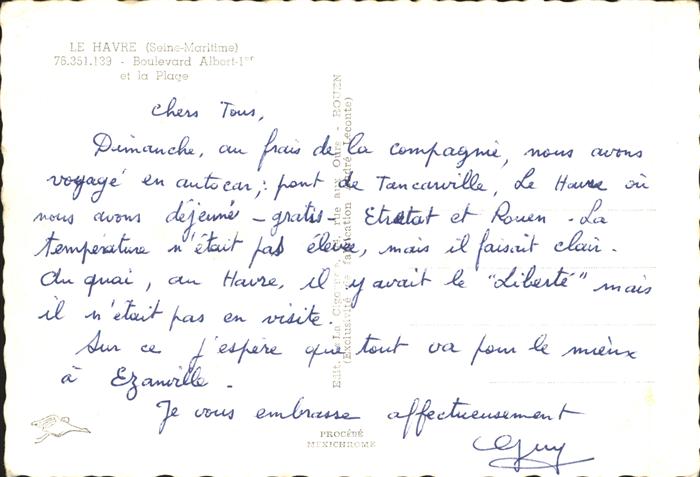 LE HAVRE (Seine-Maritime)
76.351.139 - Boulevard Albert-1er
et la Plage
Chers Tous,
Dimanche, au frais de la compagnie, nous avons
voyagé en autocar; pont de Tancarville, Le Havre où
nous avons déjeuné - gratis - Etretat et Rouen. La
température n'était pas élevée, mais il faisait clair.
Au quai, au Havre, il y avait le "Liberté" mais
il n'était pas en visite.
Sur ce j'espère que tout va pour le mieux
à Ezanville.
Je vous embrasse affectueusement
Guy
Edit. La Cigogne, aux Ours - ROUEN
(Exclusivité fabrication André Leconte)
PROCÉDÉ
MEXICHROME